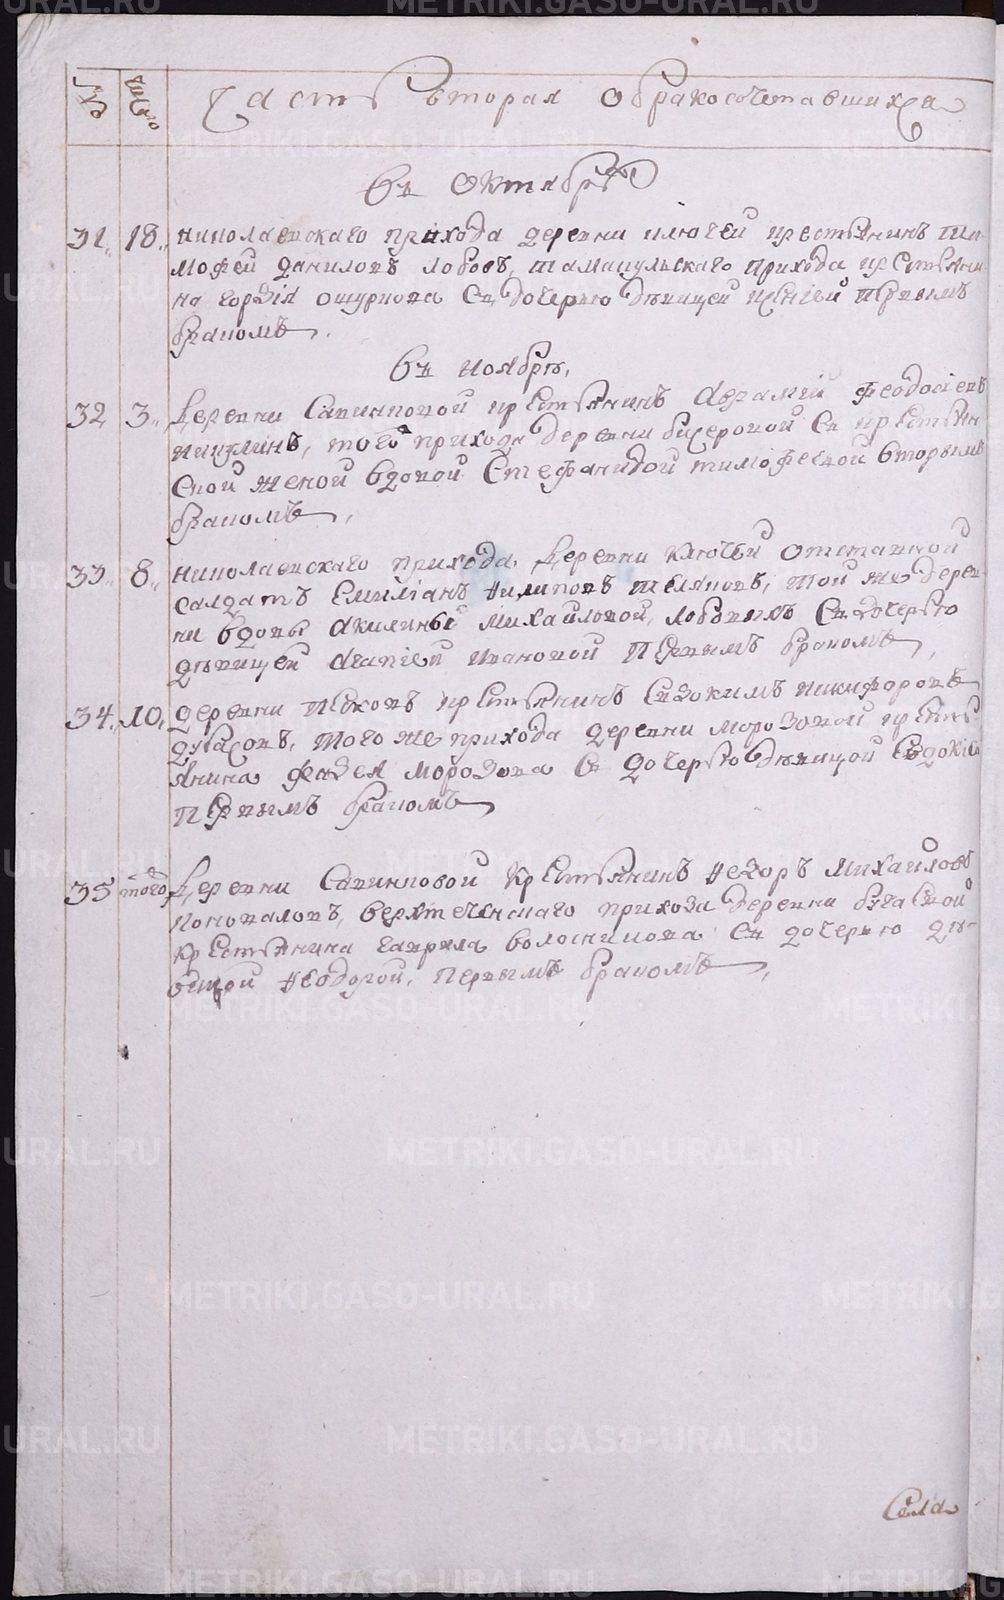 № число Часть вторая о бракосочетавшихся
въ октябрѣ
31. 18. николаевскаго прихода деревни ключей крестьянинъ ти-
мофей даниловъ лобовъ, тамакульскаго прихода крестьяни-
на гордѣя ошуркова съ дочерью дѣвицей ксенiей первымъ
бракомъ.
въ ноябрѣ.
32 3. Деревни Савинповой крестьянинъ Аврамiй феодосiевъ
того прихода деревни бисеровой съ крестьян
ской женой вдовой Стефанидой тимофеевой вторымъ
бракомъ,
33. 8. николаевскаго прихода Деревни ключей отставной
салдатъ Емилiанъ филиповъ той же дерев
ни вдовы Акилины михайловой, лобовыхъ съ дочерью
дѣвицей Агапiей ивановой первымъ бракомъ,
34. 10. деревни песковъ крестьянинъ Евдокимъ никифоровъ
того же прихода деревни морозовой кресть
янина фадея морозова съ дочерью дѣвицой Евдокiей
первымъ бракомъ
35 того Деревни Савинповой крестьянинъ Федоръ Михайловъ
коноваловъ, верхтеченскаго прихода деревни бугаевой
крестьянина гаврила волосникова съ дочерью дѣ-
вицой Феодорой, первымъ бракомъ,
Села
METRIKI.GASO-URAL.RU